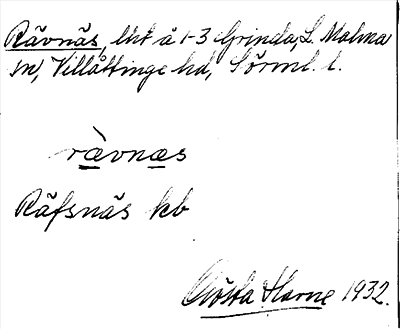 Rävnäs, lht å 1-3 Grinda, L. Malma
sn, Villåttinge hd, Sörml. l.
rävnas
Räfsnäs kb
Gösta Harne 1932.